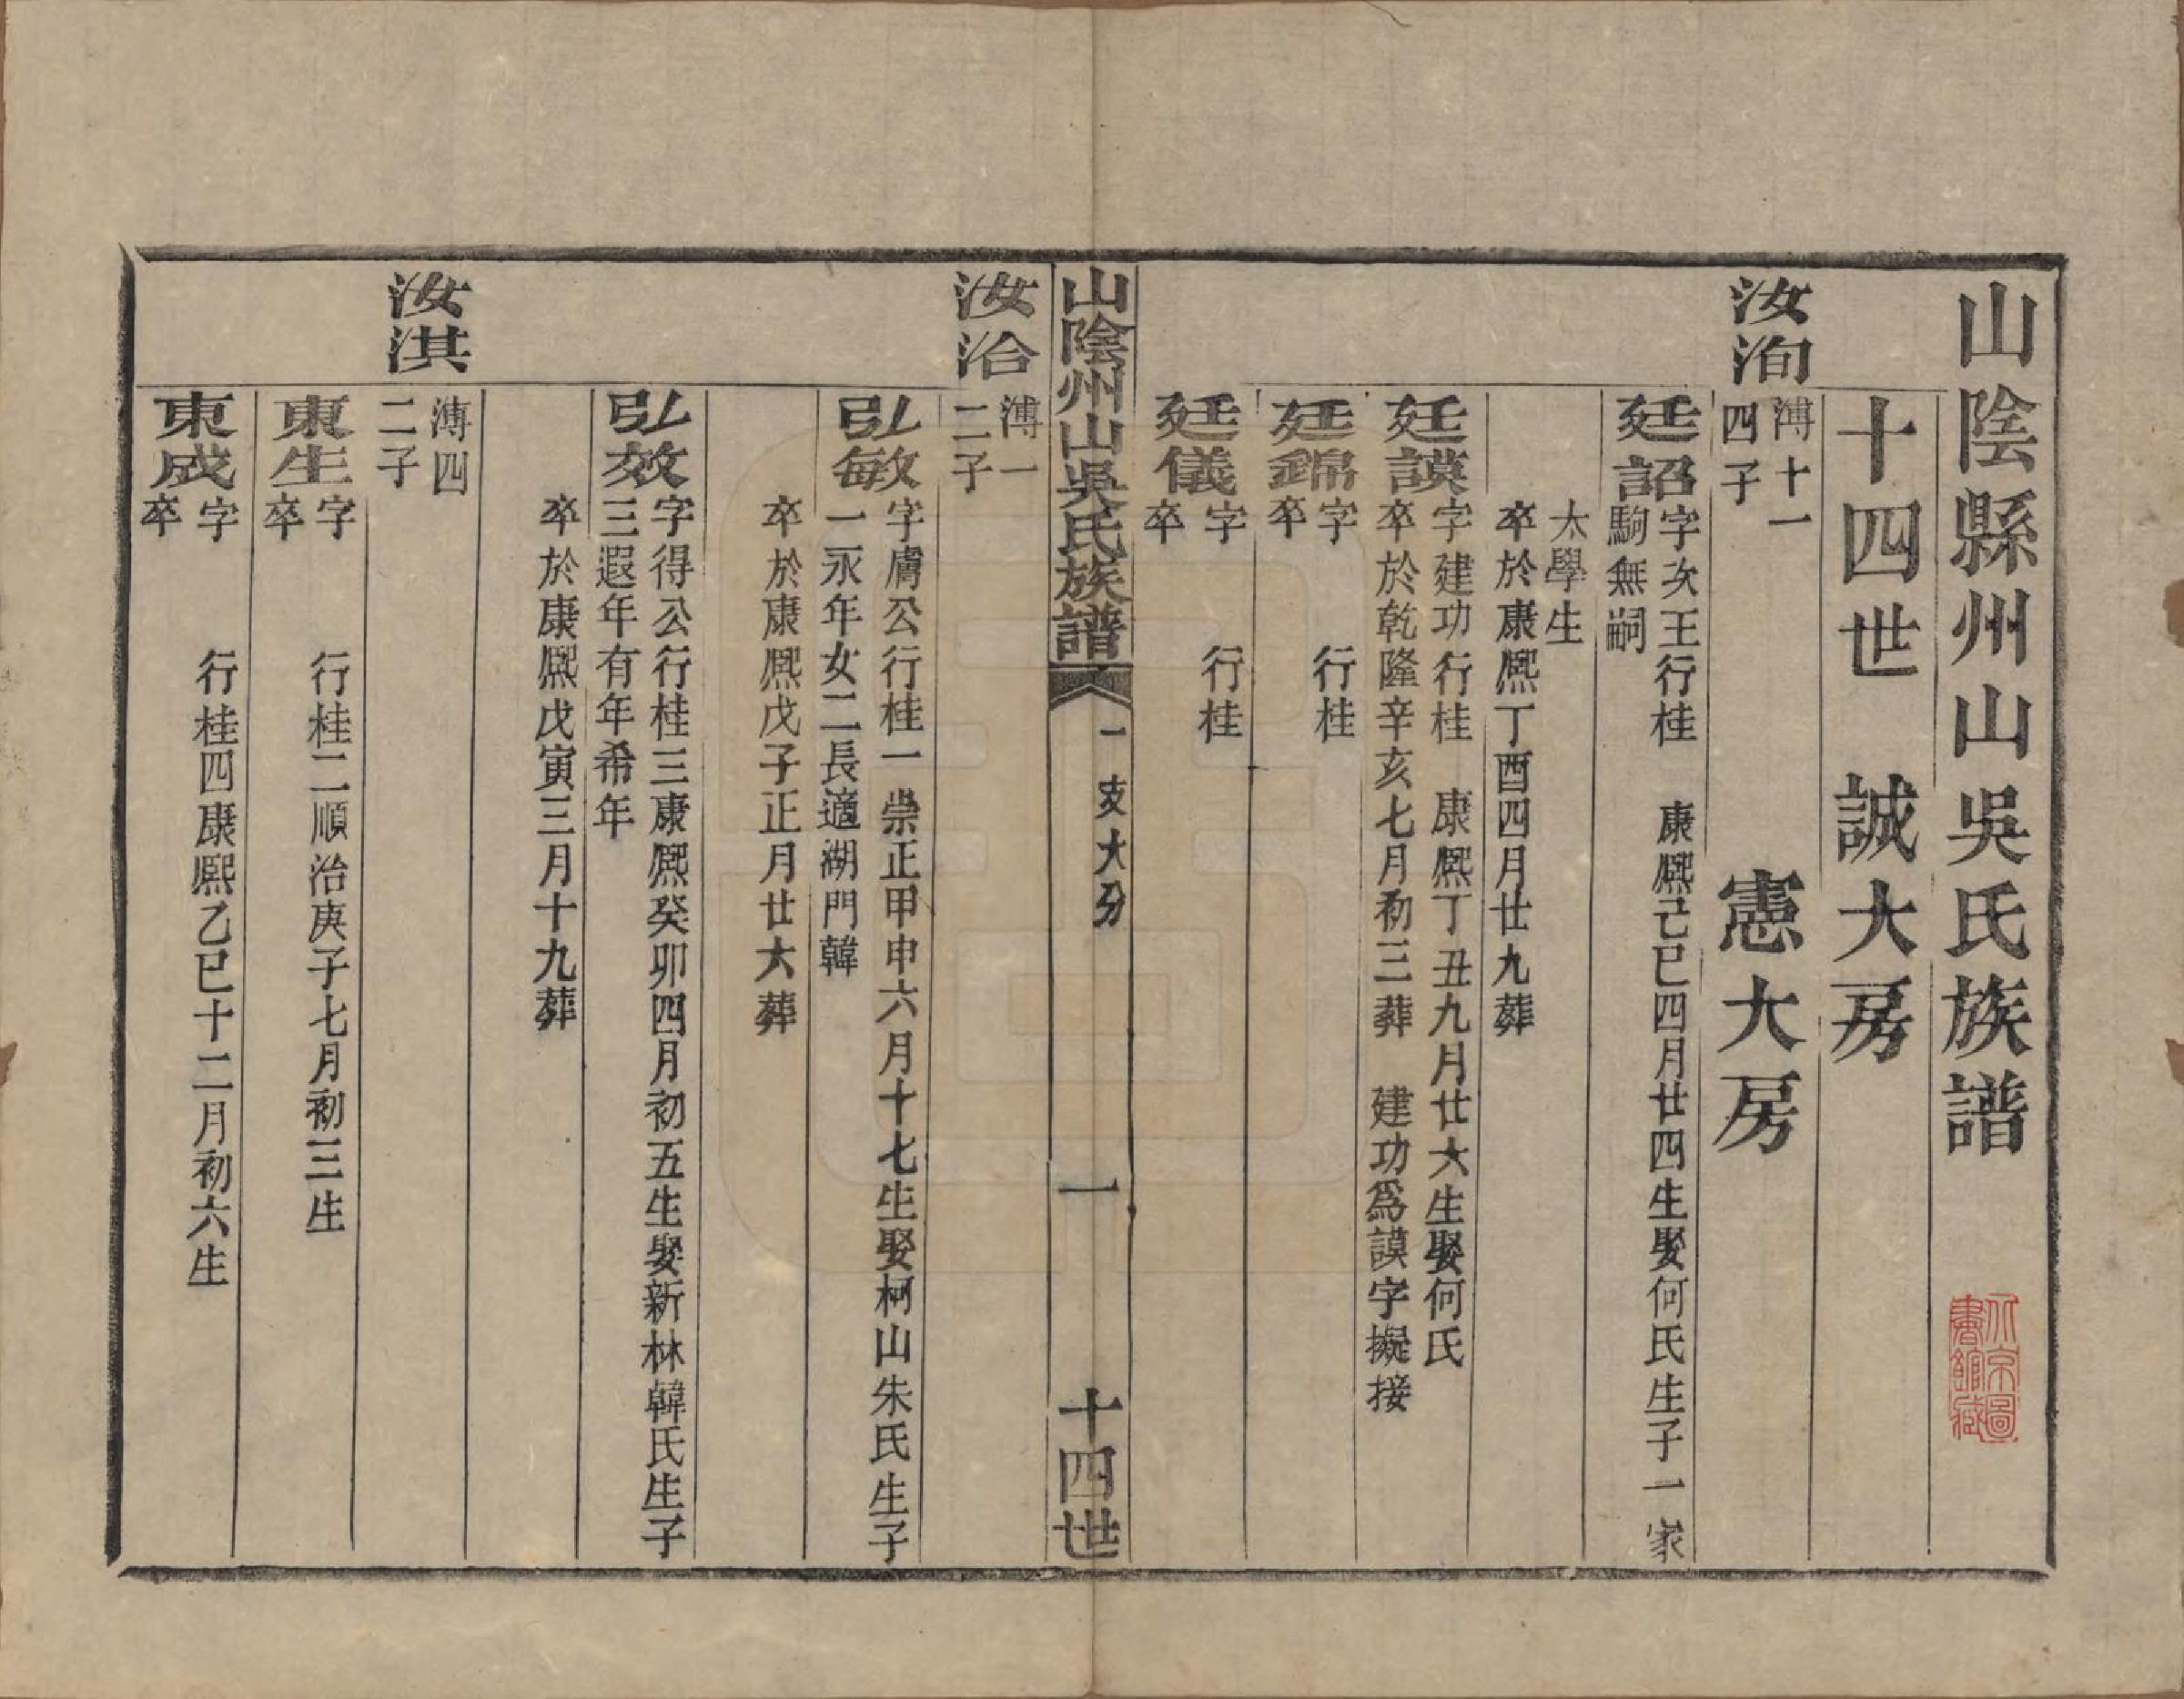 山陰縣州山吳氏族譜
十四世　誠大房
憲大房
汝洵
溥十一
四子
廷詔
字次王行桂　康熙己巳四月廿四生娶何氏生子一家
駒無嗣
太學生
卒於康熙丁酉四月廿九葬
廷謨
字建功行桂　康熙丁丑九月廿六生娶何氏
卒於乾隆辛亥七月初三葬　建功為謨字擬接
廷錦
字　行桂
卒
廷儀
字　行桂
卒
山陰州山吳氏族譜　一支大分　一　十四世
汝治
溥一
二子
弘敏
字膚公行桂一崇正甲申六月十七生娶柯山朱氏生子
一永年女二長適湖門韓
卒於康熙戊子正月廿六葬
弘效
字得公行桂三康熙癸卯四月初五生娶新林韓氏生子
三遐年有年希年
卒於康熙戊寅三月十九葬
汝淇
溥四
二子
東生
字　行桂二順治庚子七月初三生
卒
東成
字　行桂四康熙乙巳十二月初六生
卒
北京圖
書館藏